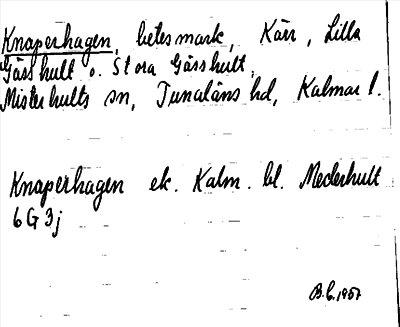 Knaperhagen, betesmark, Kärr, Lilla
Gåsshult o. Stora Gåsshult,
Misterhults sn, Tunaläns hd, Kalmar l.
Knaperhagen ek. Kalm. bl. Mederhult
6G3j
B.C. 1957